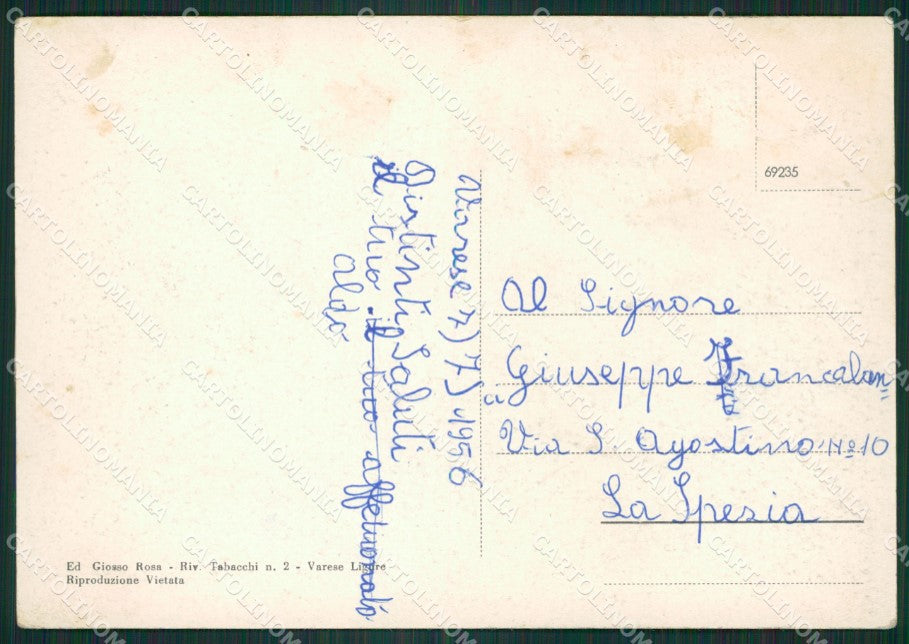 Varese 7) 7) 1956
Distinti Saluti
il tuo il tuo
Aldo
69235
Al Signore
Giuseppe
Via S. Agostino Nº 10
La Spezia
Ed Giosso Rosa - Riv. Tabacchi n. 2 - Varese Ligure
Riproduzione Vietata
CARTOLINOMANIA